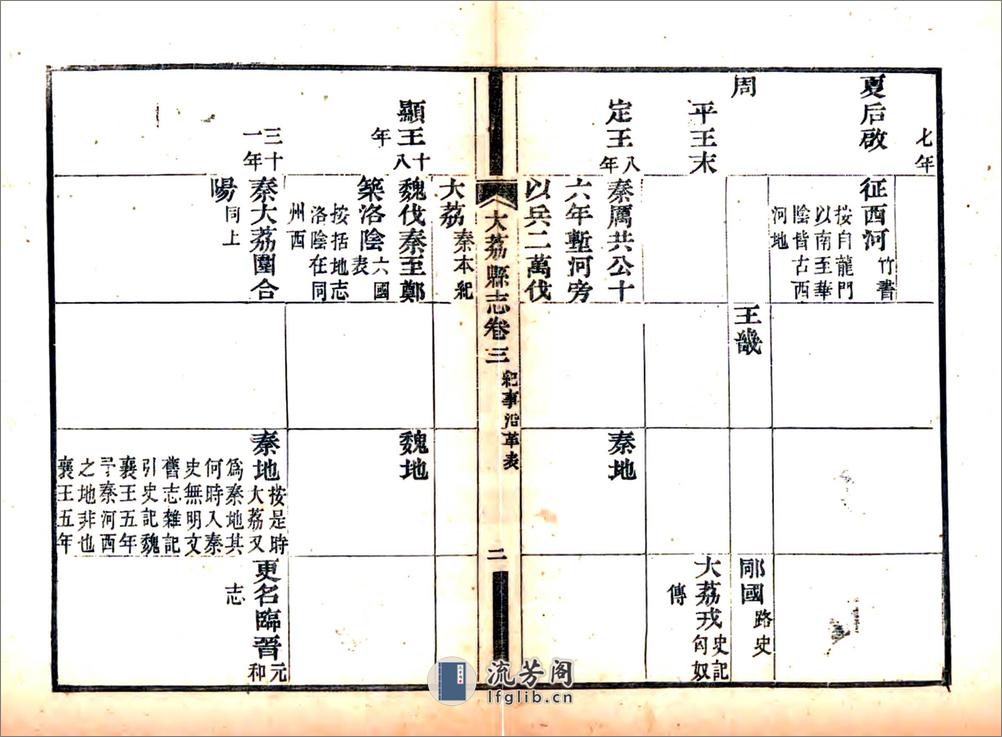 七年
夏后啟
征西河竹書
按自龍門
以南至華
陰皆古西
河地
周
王畿
郙國路史
平王末
大荔戎史記
匈奴
傳
定王八
年
秦厲共公十
六年塹河旁
以兵二萬伐
秦地
大荔縣志卷三
紀事沿革表
二
大荔秦本紀
顯王十
八
年
魏伐秦至鄭
築洛陰六國
表
按括地志
洛陰在同
州西
魏地
三十
一年
秦大荔圍合
陽同上
秦地按是時
大荔又
爲秦地其
何時入秦
史無明文
舊志雜記
引史記魏
襄王五年
予秦河西
之地非也
襄王五年
更名臨晋元
和
志
流芳阁
lfglib.cn